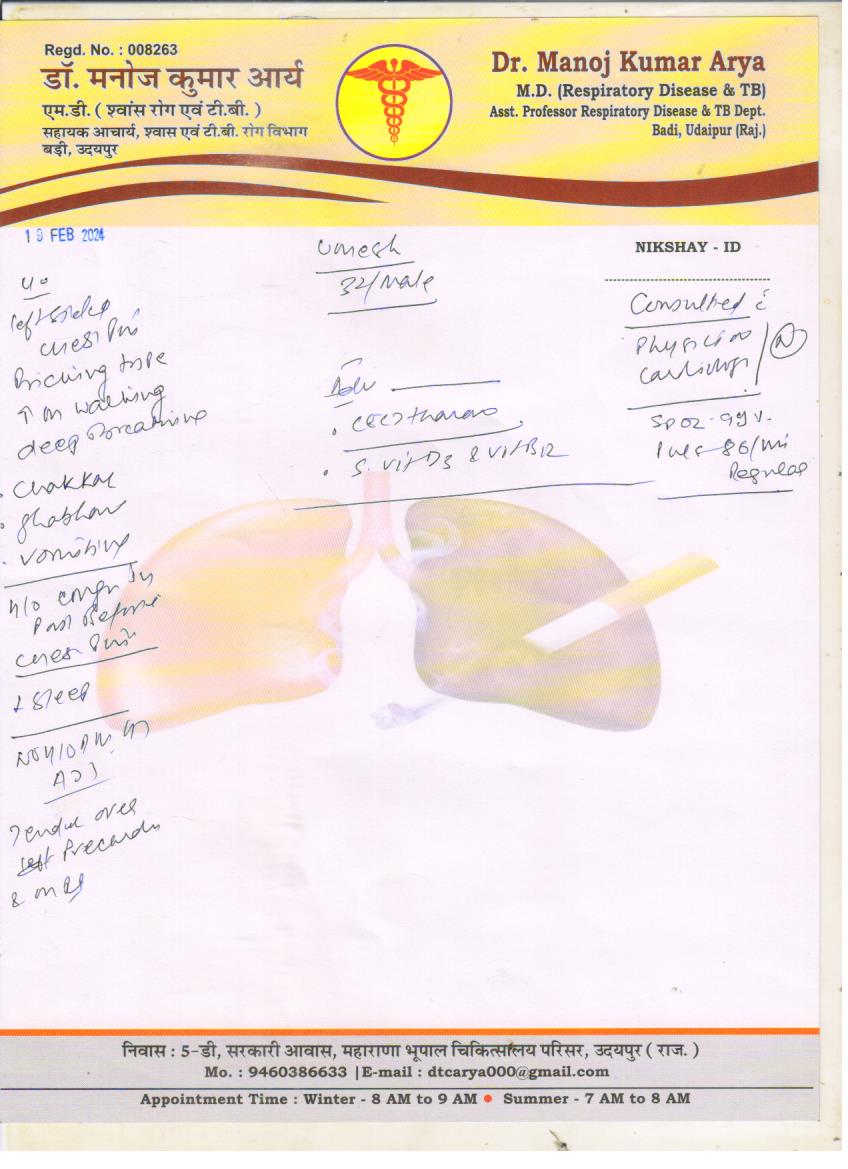 Regd. No. : 008263
डॉ. मनोज कुमार आर्य
एम.डी. ( श्वांस रोग एवं टी.बी. )
सहायक आचार्य, श्वास एवं टी.बी. रोग विभाग
बड़ी, उदयपुर
Dr. Manoj Kumar Arya
M.D. (Respiratory Disease & TB)
Asst. Professor Respiratory Disease & TB Dept.
Badi, Udaipur (Raj.)
19 FEB 2024
Umesh
32/Male
NIKSHAY - ID
left sided
chest Pain
Pricking type
↑ on walking
deep Breathing
• chakkar
• ghabhar
• vomiting
Past Before
chest Pain
↓ sleep
Tender over
left Precardi
Adv
• S. vit D3 & Vit B12
Consulted c̄
Physician
Cardiology
N
SPO2 - 99%
Pulse - 86/min
Regular
निवास : 5-डी, सरकारी आवास, महाराणा भूपाल चिकित्सालय परिसर, उदयपुर ( राज. )
Mo. : 9460386633 | E-mail : dtcarya000@gmail.com
Appointment Time : Winter - 8 AM to 9 AM • Summer - 7 AM to 8 AM